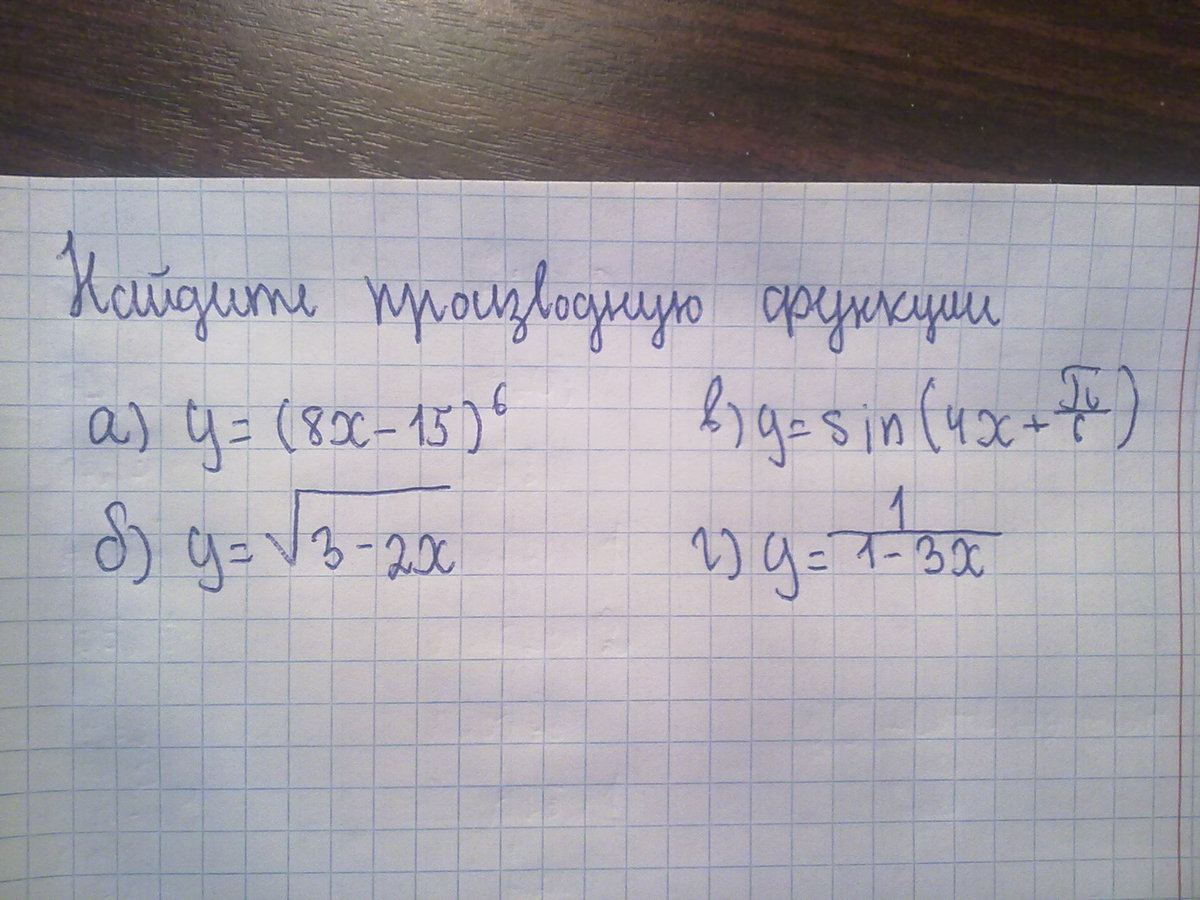 Найдите производную функции
а) y = (8x - 15)^6
в) y = sin(4x + π/6)
б) y = √(3 - 2x)
г) y = 1/(1 - 3x)